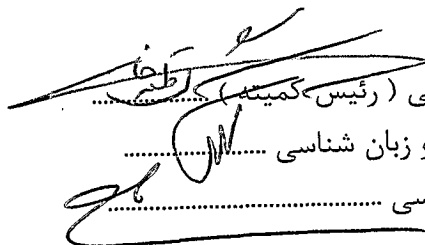 ی ( رئیس کمیته ) ....................
و زبان شناسی ....................
سی ........................................